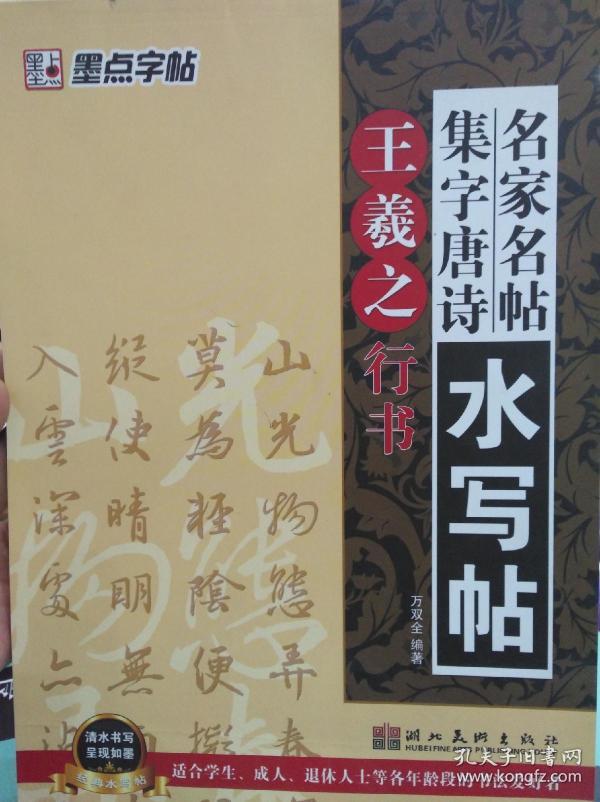 墨点
墨点字帖
名家名帖
集字唐诗
水写帖
王羲之
行书
万双全 编著
山光物態弄春
莫為輕陰便擬
縱使晴明無雨
入雲深處亦沾
山光
物態
清水书写
呈现如墨
经典水写帖
湖北美术出版社
HUBEI FINE ARTS PUBLISHING HOUSE
适合学生、成人、退休人士等各年龄段的书法爱好者
孔夫子旧书网
kongfz.com